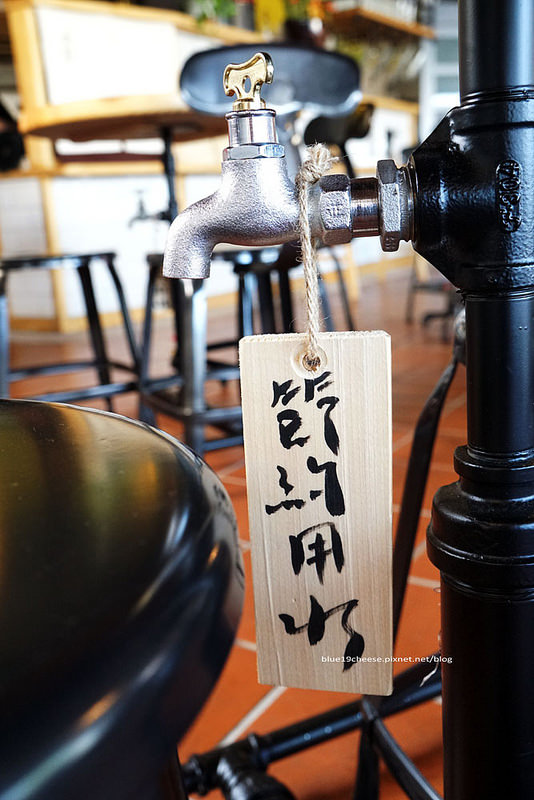 節約用水
blue19cheese.pixnet.net/blog